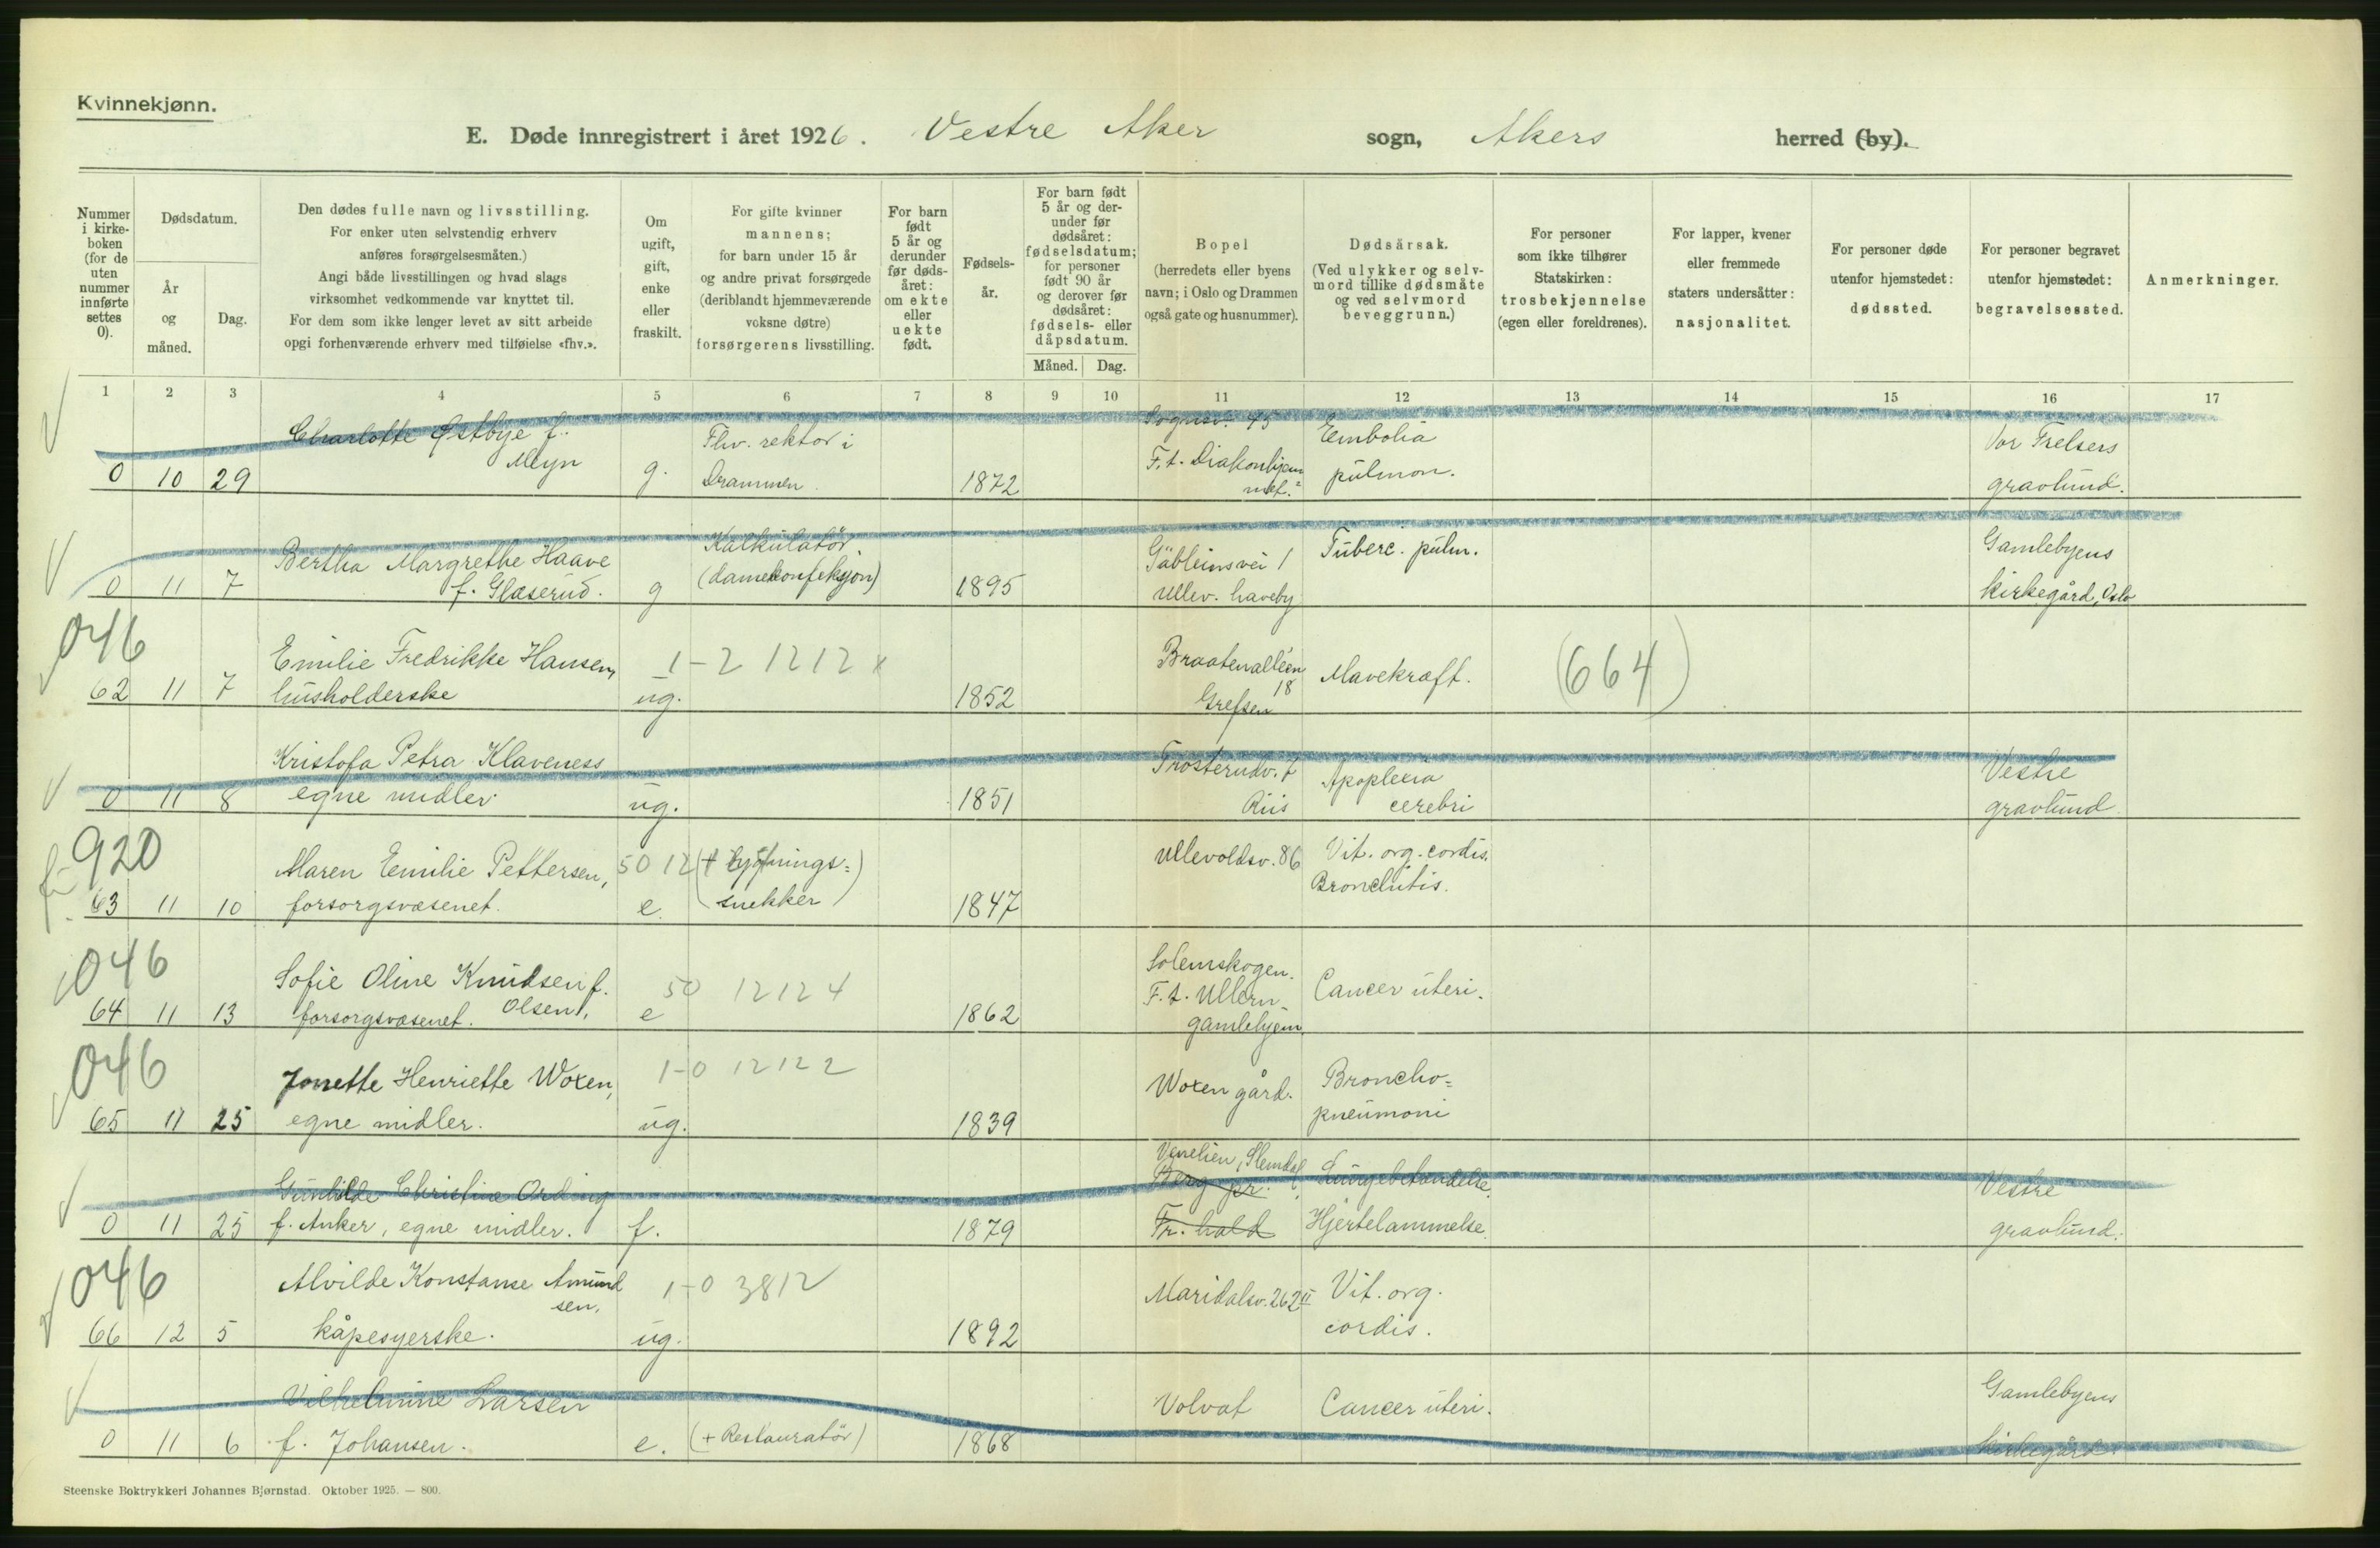 Kvinnekjønn.
E. Døde innregistrert i året 1926. Vestre Aker sogn, Akers herred (by).
Nummer i kirke-boken (for de uten nummer innførte settes 0).
Dødsdatum.
År og måned.
Dag.
Den dødes fulle navn og livsstilling.
For enker uten selvstendig erhverv
anføres forsørgelsesmåten.)
Angi både livsstillingen og hvad slags
virksomhet vedkommende var knyttet til.
For dem som ikke lenger levet av sitt arbeide
opgi forhenværende erhverv med tilføielse «fhv.».
Om ugift, gift, enke eller fraskilt.
For gifte kvinner
mannens;
for barn under 15 år
og andre privat forsørgede
(deriblandt hjemmeværende
voksne døtre)
forsørgerens livsstilling.
For barn født 5 år og derunder før døds-året: om ekte eller uekte født.
Fødsels-år.
For barn født 5 år og der-under før dødsåret: fødselsdatum; for personer født 90 år og derover før dødsåret: fødsels- eller dåpsdatum.
Måned.
Dag.
Bopel
(herredets eller byens
navn; i Oslo og Drammen
også gate og husnummer).
Dødsårsak.
(Ved ulykker og selv-
mord tillike dødsmåte
og ved selvmord
beveggrunn.)
For personer
som ikke tilhører
Statskirken:
trosbekjennelse
(egen eller foreldrenes).
For lapper, kvener
eller fremmede
staters undersåtter:
nasjonalitet.
For personer døde
utenfor hjemstedet:
dødssted.
For personer begravet
utenfor hjemstedet:
begravelsessted.
Anmerkninger.
1 2 3 4 5 6 7 8 9 10 11 12 13 14 15 16 17
Charlotte Østbye f. Fhv. rektor i Sognsv. 45 Embolia Vor Frelsers
0 10 29 Meyn g. Drammen. 1872 F.t. Diakonhjem met. pulmon. gravlund.
Bertha Margrethe Haave Kalkulatør Gäbleinsvei 1 Tuberc. pulm. Gamlebyens
0 11 7 f. Glaserud. g (damekonfeksjon) 1895 Ullev. haveby kirkegård, Oslo
046
Emilie Fredrikke Hansen, 1-2 1212 x Braatenalléen Mavekræft. (664)
62 11 7 husholderske ug. 1852 18 Grefsen
Kristofa Petra Klaveness Trosterudv. 7 Apoplexia Vestre
0 11 8 egne midler ug. 1851 Riis cerebri gravlund
920
Maren Emilie Pettersen, 50 12 Ullevoldsv. 86 Vit. org. cordis.
63 11 10 forsorgsvæsenet. e. snekker) 1847 Bronchitis.
046
Sofie Oline Knudsen f. 50 12124 Solemskogen.
64 11 13 Olsen, forsorgsvæsenet. e 1862 F.t. Ullern gamlehjem. Cancer uteri.
046
Jonette Henriette Woxen, 1-0 12122 Woxen gård. Broncho-
65 11 25 egne midler. ug. 1839 pneumoni
Gunhilde Christine Ording Slemdal, Berg pr. Lungebetændelse. Vestre
0 11 25 f. Anker, egne midler. f. 1879 Fr. hald Hjertelammelse. gravlund.
046
Alvilde Konstanse Amund 1-0 3812 Maridalsv. 262 II Vit. org.
66 12 5 sen, kåpesyerske. ug. 1892 cordis.
Vilhelmine Larsen Volvat Cancer uteri. Gamlebyens
0 11 6 f. Johansen. e. (+ Restauratør) 1868 kirkegård.
Steenske Boktrykkeri Johannes Bjørnstad. Oktober 1925. — 800.